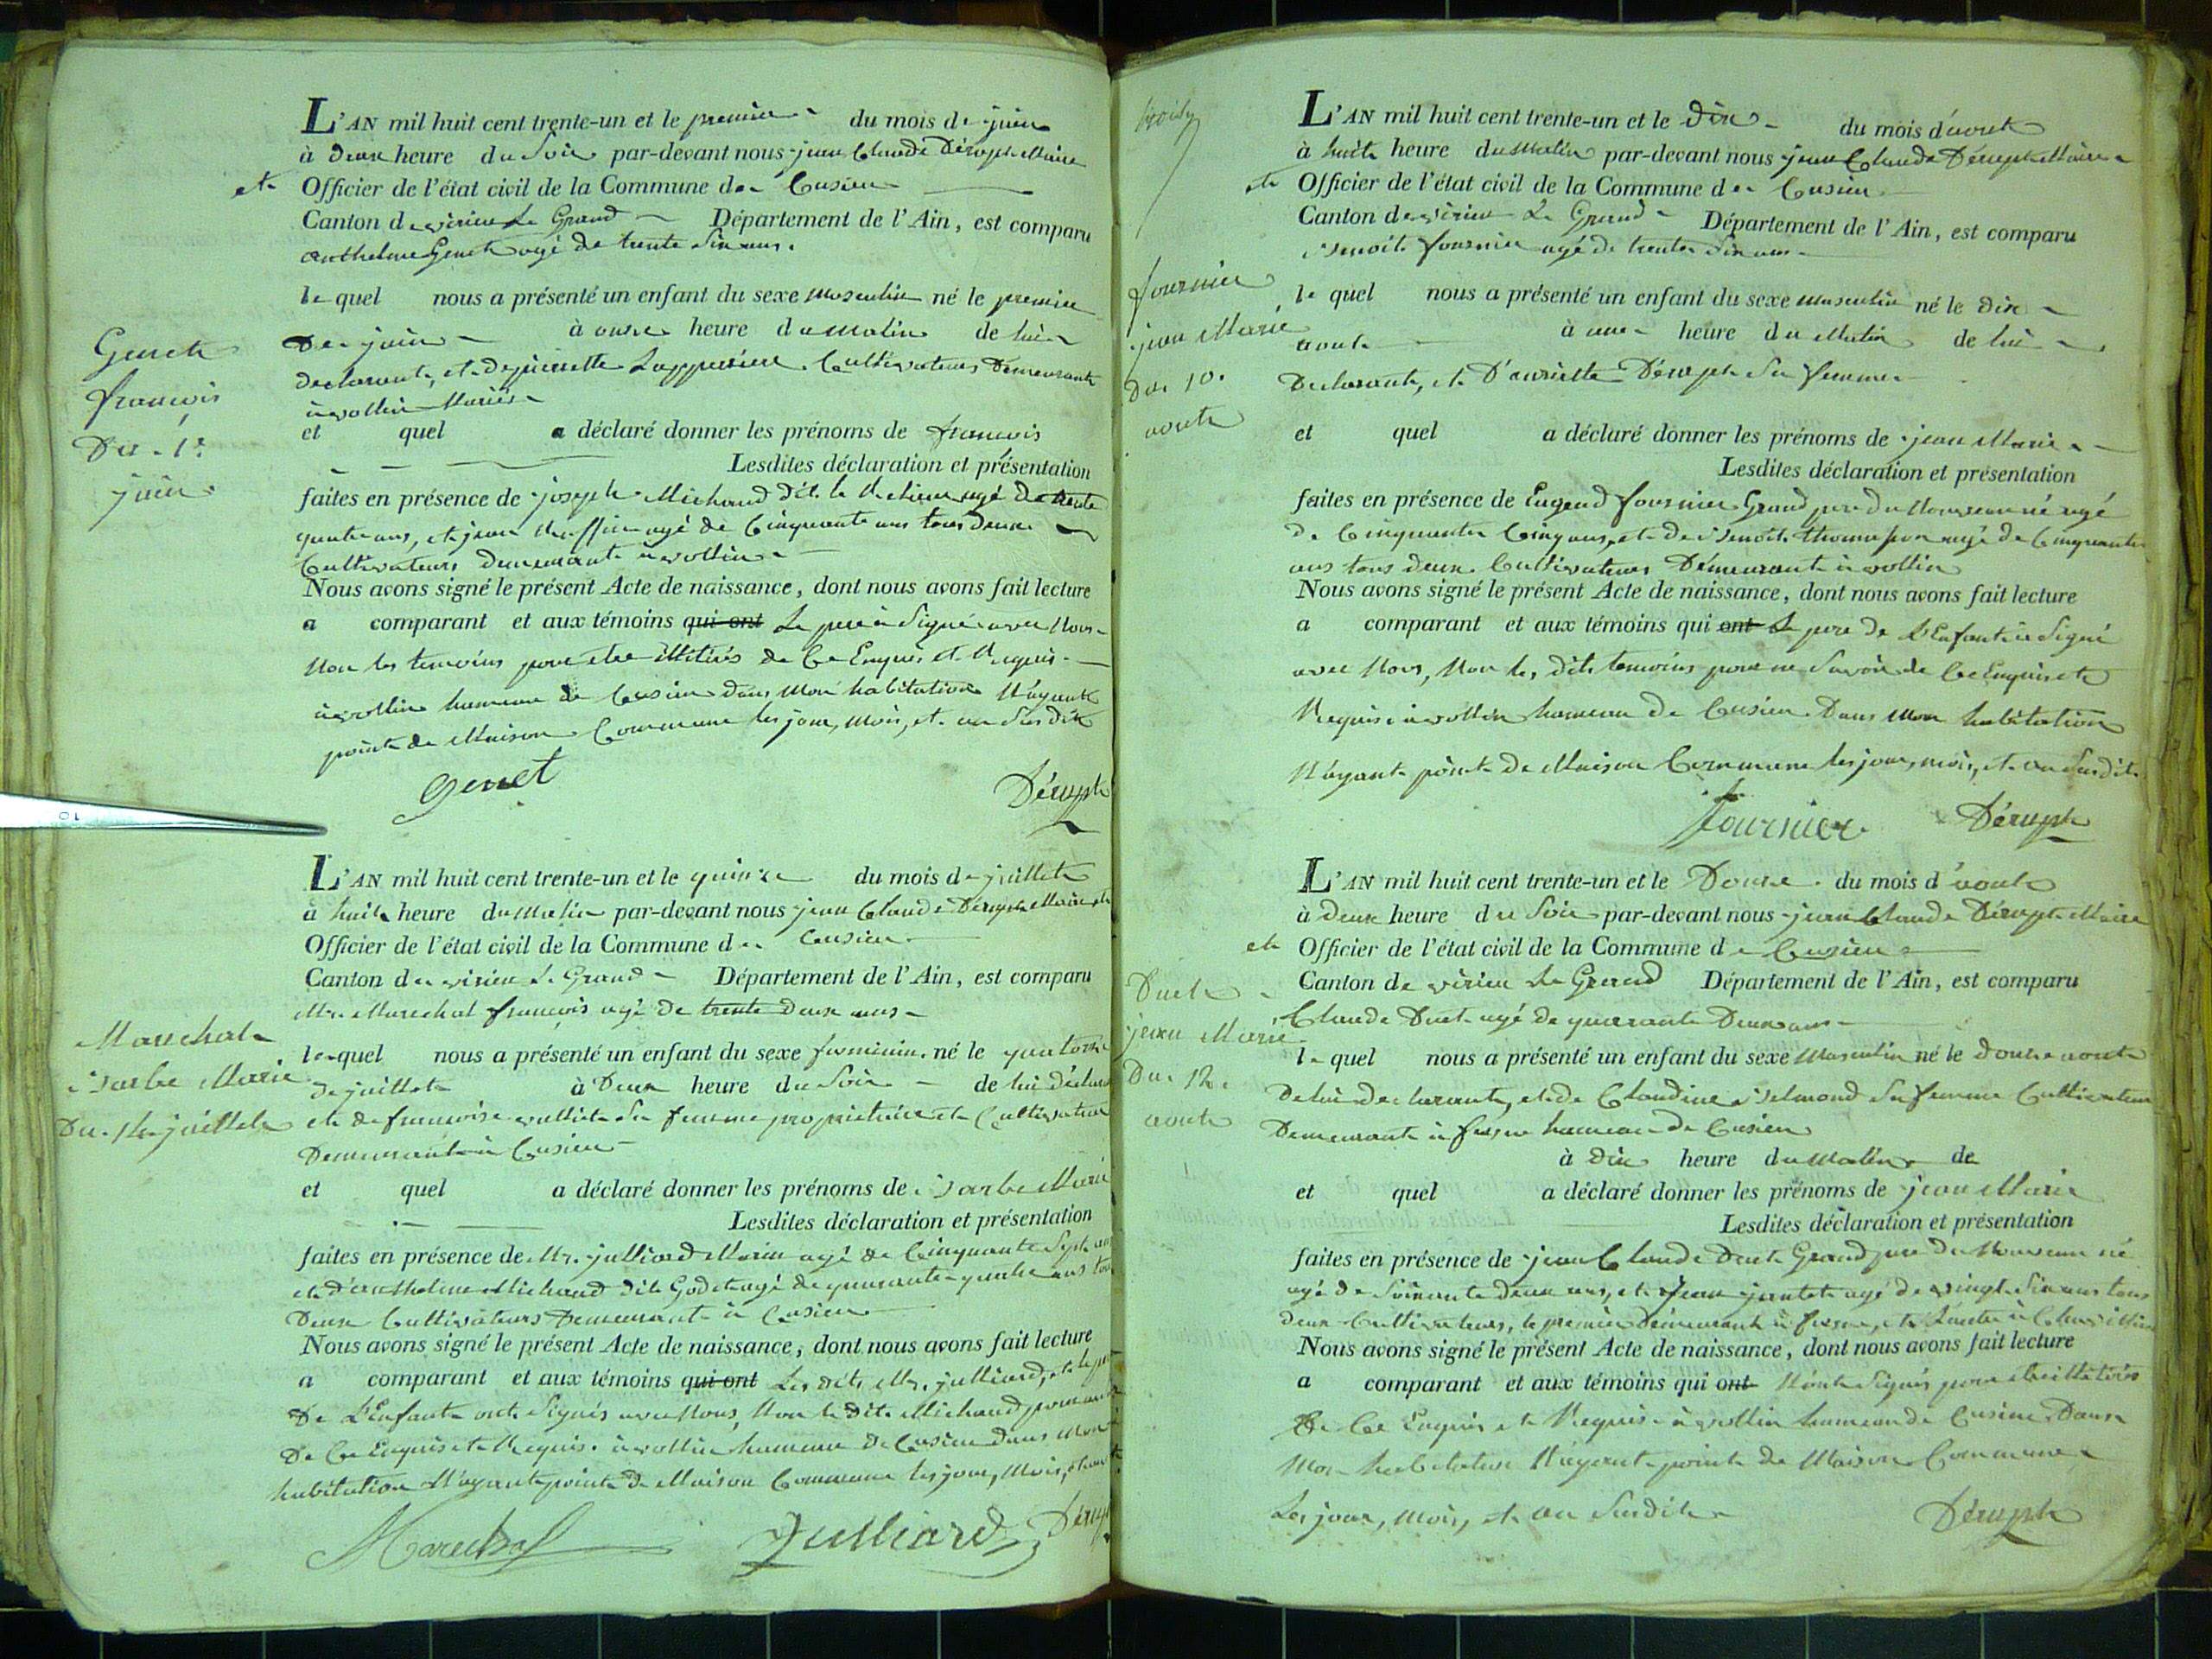 L'AN mil huit cent trente-un et le premier du mois de juin
à deux heure du Soir par-devant nous jean Claude Dérupt Maire
et Officier de l'état civil de la Commune de Cusieu
Canton de virieu Le Grand Département de l'Ain, est comparu
anthelme Genet agé de trente Six ans.
le quel nous a présenté un enfant du sexe masculin né le premier
De juin à onze heure du matin de lui
declarant, et de pierrette Cultivateurs Demeurant
à vollin Mariés
et quel a déclaré donner les prénoms de françois
Lesdites déclaration et présentation
faites en présence de joseph Michaud dit le agé de trente
quatre ans, et jean agé de Cinquante ans tous deux
Cultivateurs demeurant à vollin
Nous avons signé le présent Acte de naissance, dont nous avons fait lecture
a comparant et aux témoins qui ont Le pere à Signé avec Nous
Non les temoins pour etre illitirés de Ce Enquis et Requis.
à vollin hameau de Cusieu dans Mon habitation N'ayant
point de Maison Commune les jour, mois, et an Sus dit
Genet
Dérupt
Genet
françois
Du 1er
juin
L'AN mil huit cent trente-un et le quinze du mois de juillet
à huit heure du Matin par-devant nous jean Claude Dérupt Maire et
Officier de l'état civil de la Commune de Cusieu
Canton de virieu Le Grand Département de l'Ain, est comparu
Mr. Marechal françois agé de trente deux ans
le quel nous a présenté un enfant du sexe feminin né le quatorze
de juillet à Deux heure du Soir de lui déclarant
et de françoise sa femme proprietaire et Cultivateur
Demeurant à Cusieu
et quel a déclaré donner les prénoms de Barbe Marie
Lesdites déclaration et présentation
faites en présence de Mr. julliard Marin agé de Cinquante Sept ans
et d'anthelme Michaud dit Godet agé de quarante quatre ans tous
Deux Cultivateurs Demeurant à Cusieu
Nous avons signé le présent Acte de naissance, dont nous avons fait lecture
a comparant et aux témoins qui ont Les dits Mr. julliard, et le pere
De L'Enfant ont Signés avec Nous, Non le dit Michaud pour
De Ce Enquis et Requis. à vollin hameau de Cusieu dans Mon
habitation N'ayant point de Maison Commune les jour, Mois, et an
Marechal
Julliard
Dérupt
Marechal
Barbe Marie
Du 14 juillet
L'AN mil huit cent trente-un et le Dix du mois d'aout
à huit heure du Matin par-devant nous jean Claude Dérupt Maire
et Officier de l'état civil de la Commune de Cusieu
Canton de virieu Le Grand Département de l'Ain, est comparu
Benoit fournier agé de trente Six ans
le quel nous a présenté un enfant du sexe masculin né le dix
aout à une heure du Matin de lui
Declarant, et D'anriette Dérupt Sa femme
et quel a déclaré donner les prénoms de jean Marie
Lesdites déclaration et présentation
faites en présence de Eugend fournier Grand pere du Nouveau né agé
de Cinquante Cinq ans, et de Benoit agé de Cinquante
ans tous deux Cultivateurs Demeurant à vollin
Nous avons signé le présent Acte de naissance, dont nous avons fait lecture
a comparant et aux témoins qui ont Le pere de L'Enfant à Signé
avec Nous, Non les dits temoins pour ne Savoir de Ce Enquis et
Requis à vollin hameau de Cusieu Dans Mon habitation
N'ayant point de Maison Commune les jour, mois, et an Susdit
Fournier
Dérupt
fournier
jean Marie
Du 10.
aout
L'AN mil huit cent trente-un et le Douze du mois d'aout
à Deux heure du Soir par-devant nous jean Claude Dérupt Maire
et Officier de l'état civil de la Commune de Cusieu
Canton de virieu Le Grand Département de l'Ain, est comparu
Claude Duet agé de quarante Deux ans
le quel nous a présenté un enfant du sexe masculin né le Douze aout
De lui declarant, et de Claudine Belmond Sa femme Cultivateur
Demeurant à hameau de Cusieu
à Dix heure du Matin de
et quel a déclaré donner les prénoms de jean Marie
Lesdites déclaration et présentation
faites en présence de jean Claude Duet Grand pere du Nouveau né
agé de Soixante deux ans, et Jean agé de vingt Six ans tous
deux Cultivateurs, le premier demeurant à et L'autre à
Nous avons signé le présent Acte de naissance, dont nous avons fait lecture
a comparant et aux témoins qui ont N'ont Signés pour etre illitirés
De Ce Enquis et Requis à vollin hameau de Cusieu Dans
Mon habitation N'ayant point de Maison Commune
Les jour, mois, et an Susdit
Dérupt
Duet
jean Marie
Du 12.
aout